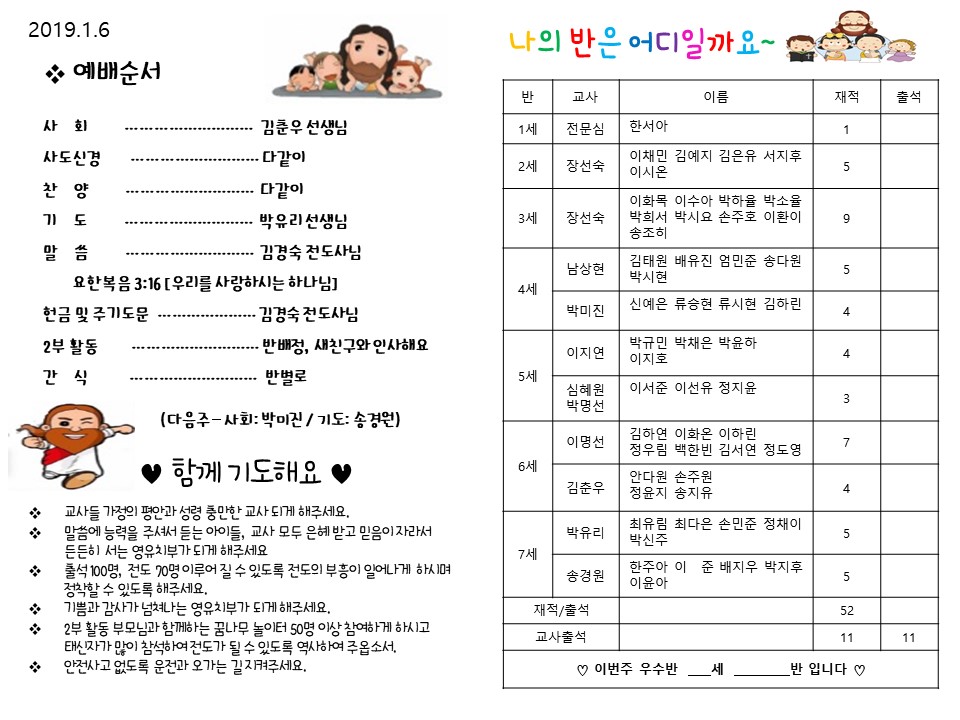 2019.1.6
❖ 예배순서
사 회 ………………………… 김춘우 선생님
사도신경 ………………………… 다같이
찬 양 ………………………… 다같이
기 도 ………………………… 박유리 선생님
말 씀 ………………………… 김경숙 전도사님
요한복음 3:16 [우리를 사랑하시는 하나님]
헌금 및 주기도문 ………………… 김경숙 전도사님
2부 활동 ………………………… 반배정, 새친구와 인사해요
간 식 ………………………… 반별로
(다음주 – 사회: 박미진 / 기도: 송경원)
♥ 함께 기도해요 ♥
❖ 교사들 가정의 평안과 성령 충만한 교사 되게 해주세요.
❖ 말씀에 능력을 주셔서 듣는 아이들, 교사 모두 은혜 받고 믿음이 자라서
든든히 서는 영유치부가 되게 해주세요
❖ 출석 100명, 전도 70명 이루어 질 수 있도록 전도의 부흥이 일어나게 하시며
정착할 수 있도록 해주세요.
❖ 기쁨과 감사가 넘쳐나는 영유치부가 되게 해주세요.
❖ 2부 활동 부모님과 함께하는 꿈나무 놀이터 50명 이상 참여하게 하시고
태신자가 많이 참석하여 전도가 될 수 있도록 역사하여 주옵소서.
❖ 안전사고 없도록 운전과 오가는 길 지켜주세요.
나의 반은 어디일까요~
반 교사 이름 재적 출석
1세 전문심 한서아 1
2세 장선숙 이채민 김예지 김은유 서지후 5
이시온
3세 장선숙 이화목 이수아 박하율 박소율 9
박희서 박시요 손주호 이환이
송조히
4세 남상현 김태원 배유진 엄민준 송다원 5
박시현
박미진 신예은 류승현 류시현 김하린 4
5세 이지연 박규민 박채은 박윤하 4
이지호
심혜원 이서준 이선유 정지윤 3
박명선
6세 이명선 김하연 이화온 이하린 7
정우림 백한빈 김서연 정도영
김춘우 안다원 손주원 4
정윤지 송지유
7세 박유리 최유림 최다은 손민준 정채이 5
박신주
송경원 한주아 이 준 배지우 박지후 5
이윤아
재적/출석 52
교사출석 11 11
♡ 이번주 우수반 ___세 ________반 입니다 ♡